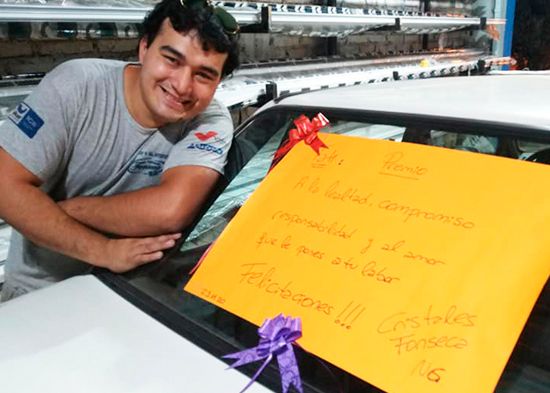 Premio
A la lealtad, compromiso
responsabilidad y al amor
que le pones a tu labor
Felicitaciones!!!
Cristales
Fonseca
NG